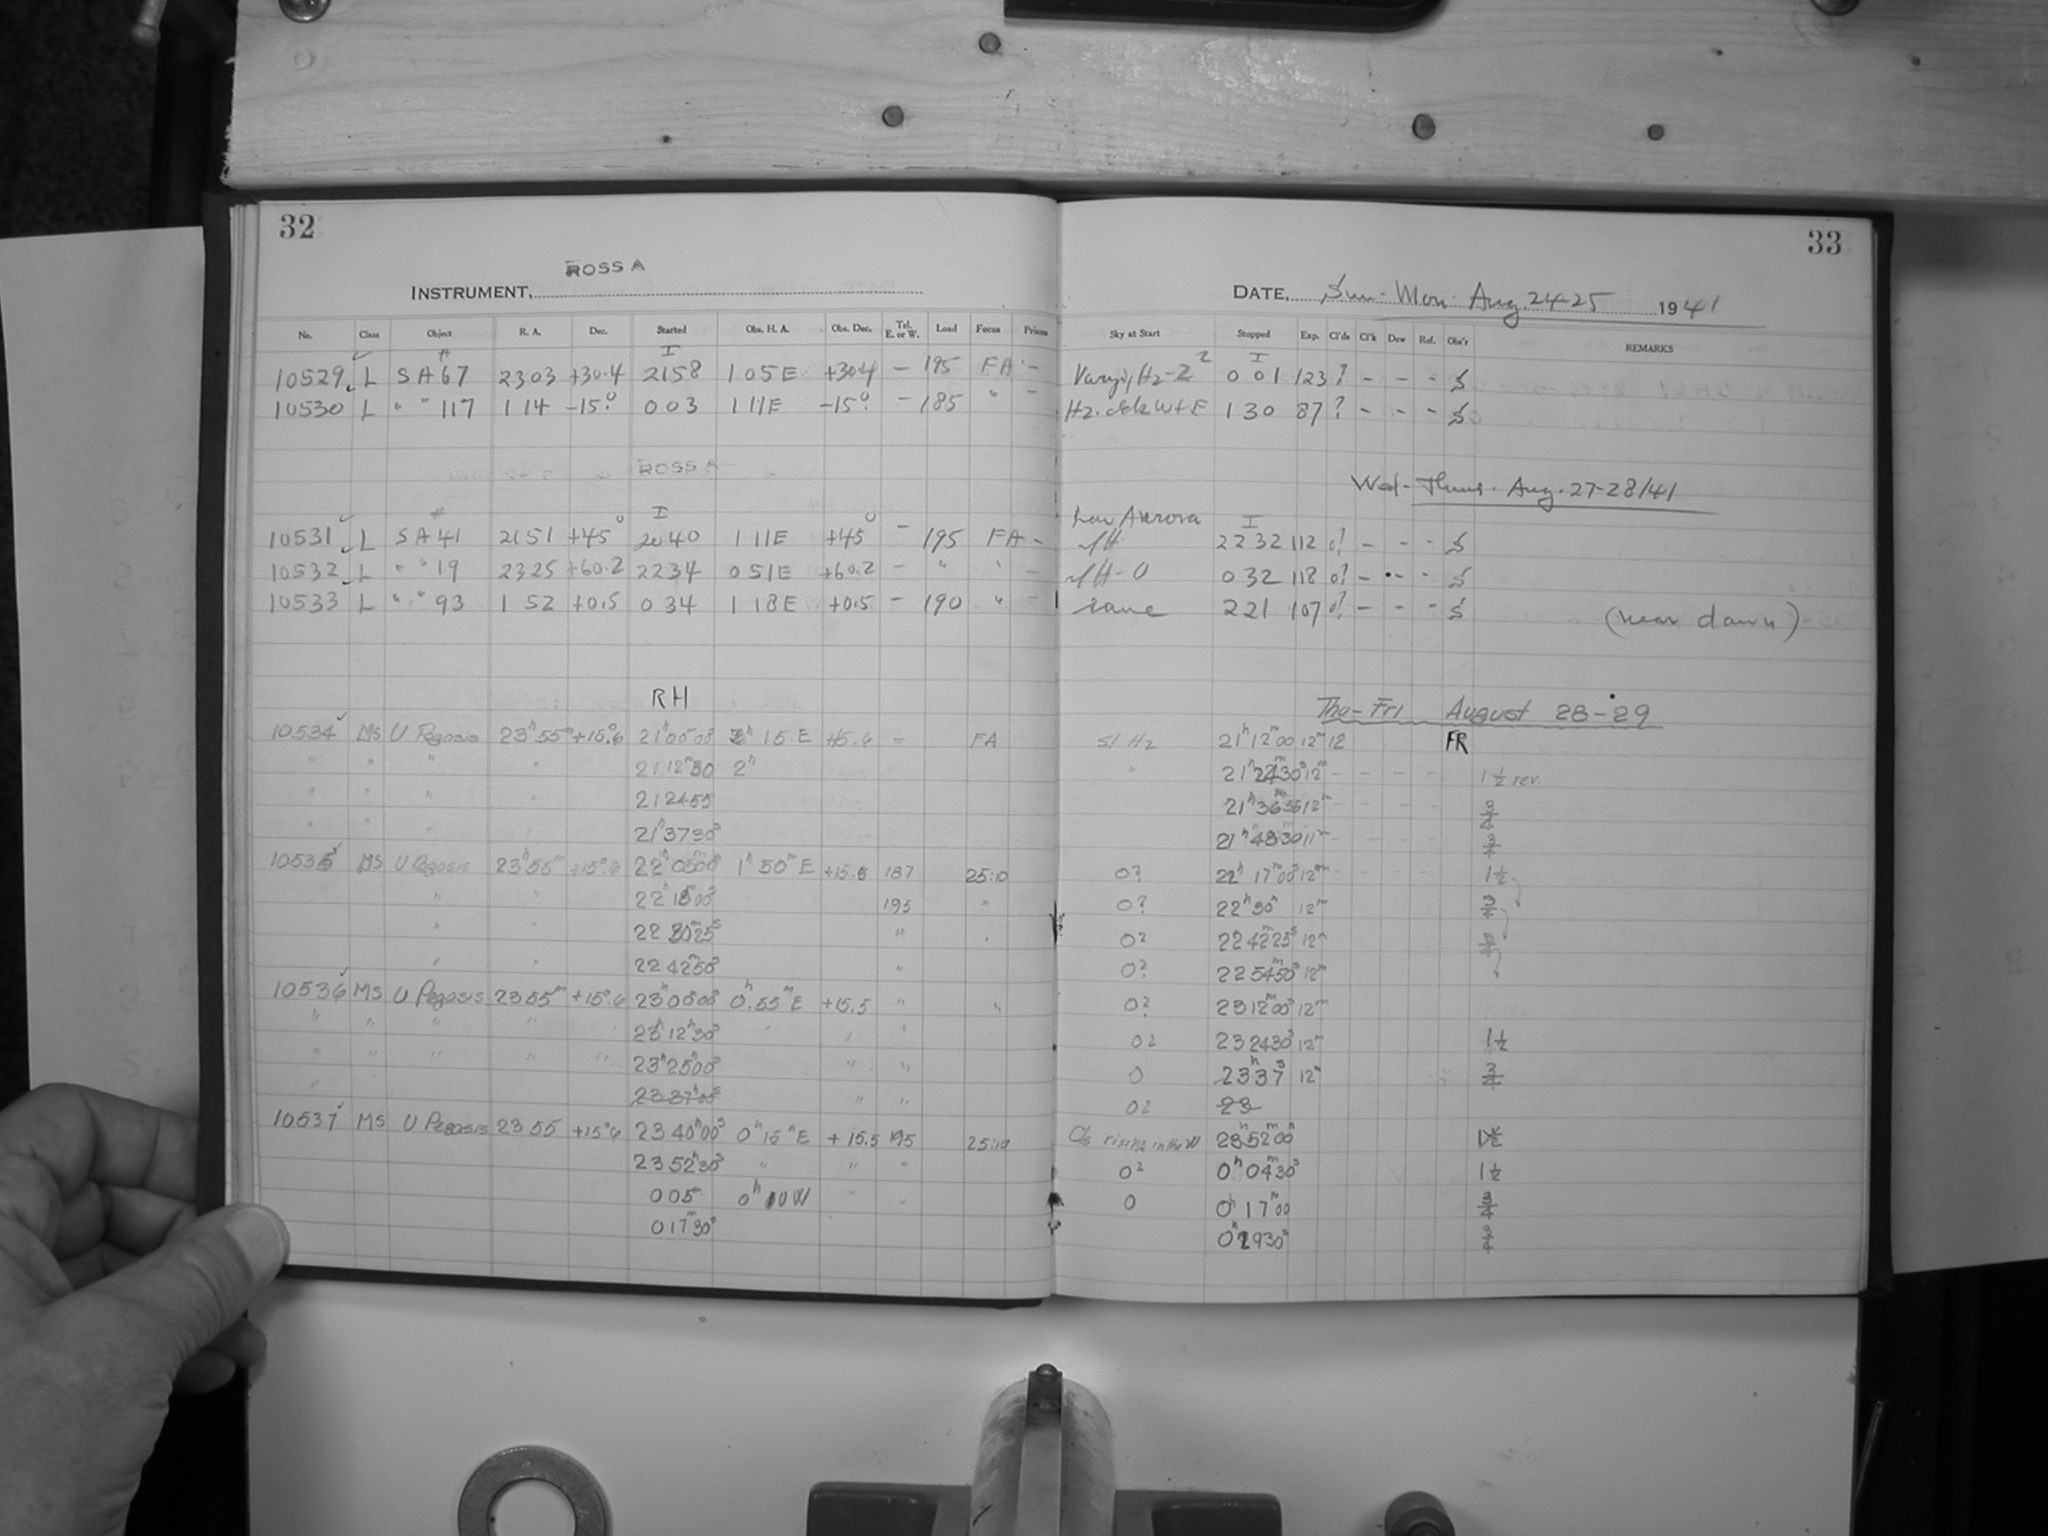 32
33
ROSS A
INSTRUMENT,
DATE, Sun-Mon. Aug. 24-25 1941
No. Class Object R. A. Dec. Started Obs. H. A. Obs. Dec. Tel. E. or W. Load Focus Prisms Sky at Start Stopped Exp. Cl'ds Cl'k Dew Ref. Obs'r REMARKS
10529 L SA 67 2303 +30.4 2158 1 05E +30.4 - 195 FA - 0 01 123 ? - - - S
10530 L " " 117 1 14 -15° 0 03 1 11E -15° - 185 " - 1 30 87 ? - - - S
ROSS A
Wed-Thurs. Aug. 27-28/41
Low Aurora
10531 L SA 41 2151 +45° 2040 1 11E +45° - 195 FA - 2232 112 0? - - - S
10532 L " " 19 2325 +60.2 2234 0 51E +60.2 - " " - 0 32 118 0? - - - S
10533 L " " 93 1 52 +0.5 0 34 1 18E +0.5 - 190 " - same 2 21 107 0? - - - S (near dawn)
RH
Thu-Fri August 28-29
10534 MS U Pegasis 23h55m +15°.6 15 E - FA Sl Hz 21h 12m 00 12m 12 FR
" " " " 21 12m30 2h " 12m - - - - 1 1/2 rev.
" " " " 21 24 55 12m - - - - 3/4
" " " " 21h 37 30s 21h 48 30 11m - - - - 3/4
10535 MS U Pegasis 23h55m +15°.6 22h 05 00 1h 50m E +15.5 187 25:10 0? 22h 17m 00s 12m 1 1/2
" " 22h 18 00s 195 " 0? 22h 30m 12m 3/4
" " 22 30m 25s " " 0? 22 42m 25s 12m
" " 22 42m 50s " 0? 22 54m 50s 12m
10536 MS U Pegasis 23 55m +15°.6 23h 00 00 0h.55m E +15.5 " " 0? 23 12m 00s 12m
" " " " 23h 12 30s " " " 0? 23 24 30s 12m 1 1/2
" " " " " 23h 25 00 " " 0 23h 37 12m 3/4
" 23 37 00s " " 0? 23
10537 MS U Pegasis 23 55 +15°.6 23 40 00s 0h 15m E +15.5 195 25:10 Cls rising in the W 23h 52m 00s
23 52 30s " " " 0? 0h 04m 30s 1 1/2
0 05 0h 10W " " 0 0h 17m 00 3/4
0 17m 30s 0h 29 30s 3/4